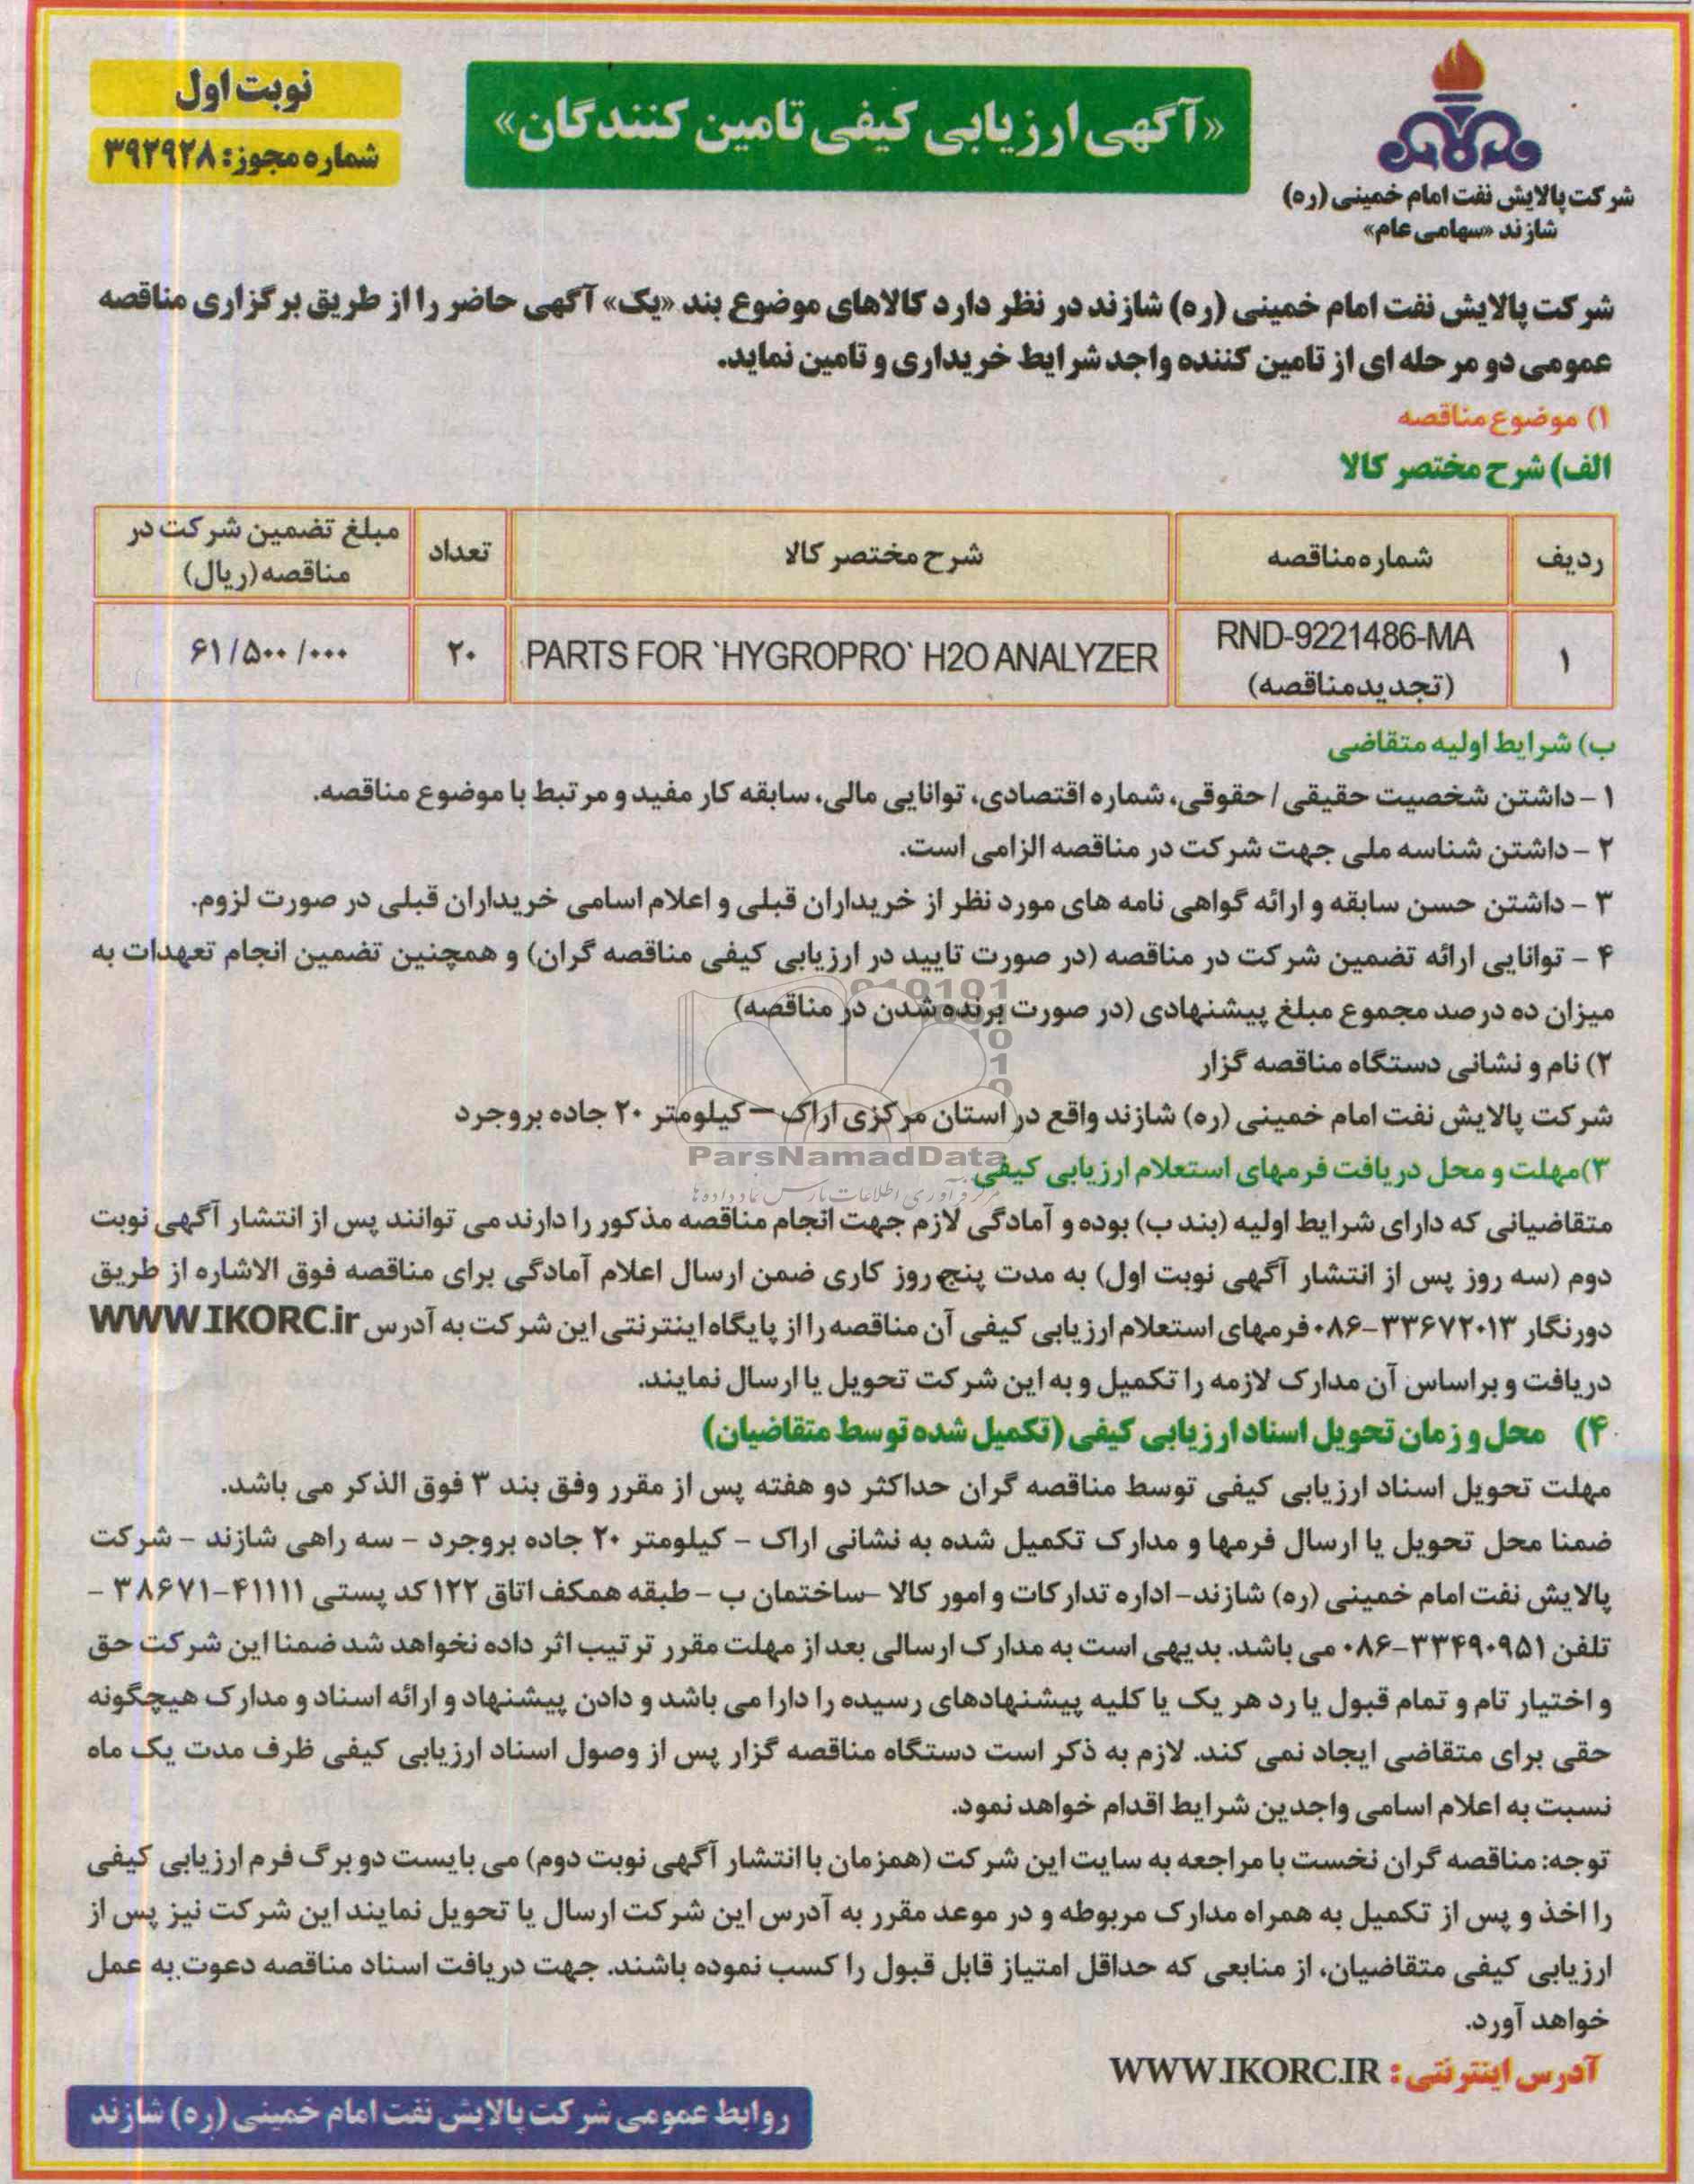 شرکت پالایش نفت امام خمینی (ره)
شازند «سهامی عام»
«آگهی ارزیابی کیفی تامین کنندگان»
نوبت اول
شماره مجوز: ۳۹۲۹۲۸
شرکت پالایش نفت امام خمینی (ره) شازند در نظر دارد کالاهای موضوع بند «یک» آگهی حاضر را از طریق برگزاری مناقصه
عمومی دو مرحله ای از تامین کننده واجد شرایط خریداری و تامین نماید.
۱) موضوع مناقصه
الف) شرح مختصر کالا
ردیف شماره مناقصه شرح مختصر کالا تعداد مبلغ تضمین شرکت در مناقصه (ریال)
۱ RND-9221486-MA (تجدید مناقصه) PARTS FOR `HYGROPRO` H2O ANALYZER ۲۰ ۶۱/۵۰۰/۰۰۰
ب) شرایط اولیه متقاضی
۱ - داشتن شخصیت حقیقی / حقوقی، شماره اقتصادی، توانایی مالی، سابقه کار مفید و مرتبط با موضوع مناقصه.
۲ - داشتن شناسه ملی جهت شرکت در مناقصه الزامی است.
۳ - داشتن حسن سابقه و ارائه گواهی نامه های مورد نظر از خریداران قبلی و اعلام اسامی خریداران قبلی در صورت لزوم.
۴ - توانایی ارائه تضمین شرکت در مناقصه (در صورت تایید در ارزیابی کیفی مناقصه گران) و همچنین تضمین انجام تعهدات به
میزان ده درصد مجموع مبلغ پیشنهادی (در صورت برنده شدن در مناقصه)
۲) نام و نشانی دستگاه مناقصه گزار
شرکت پالایش نفت امام خمینی (ره) شازند واقع در استان مرکزی اراک – کیلومتر ۲۰ جاده بروجرد
ParsNamadData
مرکز فرآوری اطلاعات پارس نماد داده ها
۳) مهلت و محل دریافت فرمهای استعلام ارزیابی کیفی
متقاضیانی که دارای شرایط اولیه (بند ب) بوده و آمادگی لازم جهت انجام مناقصه مذکور را دارند می توانند پس از انتشار آگهی نوبت
دوم (سه روز پس از انتشار آگهی نوبت اول) به مدت پنج روز کاری ضمن ارسال اعلام آمادگی برای مناقصه فوق الاشاره از طریق
دورنگار ۳۳۶۷۲۰۱۳-۰۸۶ فرمهای استعلام ارزیابی کیفی آن مناقصه را از پایگاه اینترنتی این شرکت به آدرس WWW.IKORC.ir
دریافت و براساس آن مدارک لازمه را تکمیل و به این شرکت تحویل یا ارسال نمایند.
۴) محل و زمان تحویل اسناد ارزیابی کیفی (تکمیل شده توسط متقاضیان)
مهلت تحویل اسناد ارزیابی کیفی توسط مناقصه گران حداکثر دو هفته پس از مقرر وفق بند ۳ فوق الذکر می باشد.
ضمنا محل تحویل یا ارسال فرمها و مدارک تکمیل شده به نشانی اراک – کیلومتر ۲۰ جاده بروجرد – سه راهی شازند – شرکت
پالایش نفت امام خمینی (ره) شازند- اداره تدارکات و امور کالا –ساختمان ب – طبقه همکف اتاق ۱۲۲ کد پستی ۴۱۱۱۱-۳۸۶۷۱ –
تلفن ۳۳۴۹۰۹۵۱-۰۸۶ می باشد. بدیهی است به مدارک ارسالی بعد از مهلت مقرر ترتیب اثر داده نخواهد شد ضمنا این شرکت حق
و اختیار تام و تمام قبول یا رد هر یک یا کلیه پیشنهادهای رسیده را دارا می باشد و دادن پیشنهاد و ارائه اسناد و مدارک هیچگونه
حقی برای متقاضی ایجاد نمی کند. لازم به ذکر است دستگاه مناقصه گزار پس از وصول اسناد ارزیابی کیفی ظرف مدت یک ماه
نسبت به اعلام اسامی واجدین شرایط اقدام خواهد نمود.
توجه: مناقصه گران نخست با مراجعه به سایت این شرکت (همزمان با انتشار آگهی نوبت دوم) می بایست دو برگ فرم ارزیابی کیفی
را اخذ و پس از تکمیل به همراه مدارک مربوطه و در موعد مقرر به آدرس این شرکت ارسال یا تحویل نمایند این شرکت نیز پس از
ارزیابی کیفی متقاضیان، از منابعی که حداقل امتیاز قابل قبول را کسب نموده باشند. جهت دریافت اسناد مناقصه دعوت به عمل
خواهد آورد.
آدرس اینترنتی: WWW.IKORC.IR
روابط عمومی شرکت پالایش نفت امام خمینی (ره) شازند